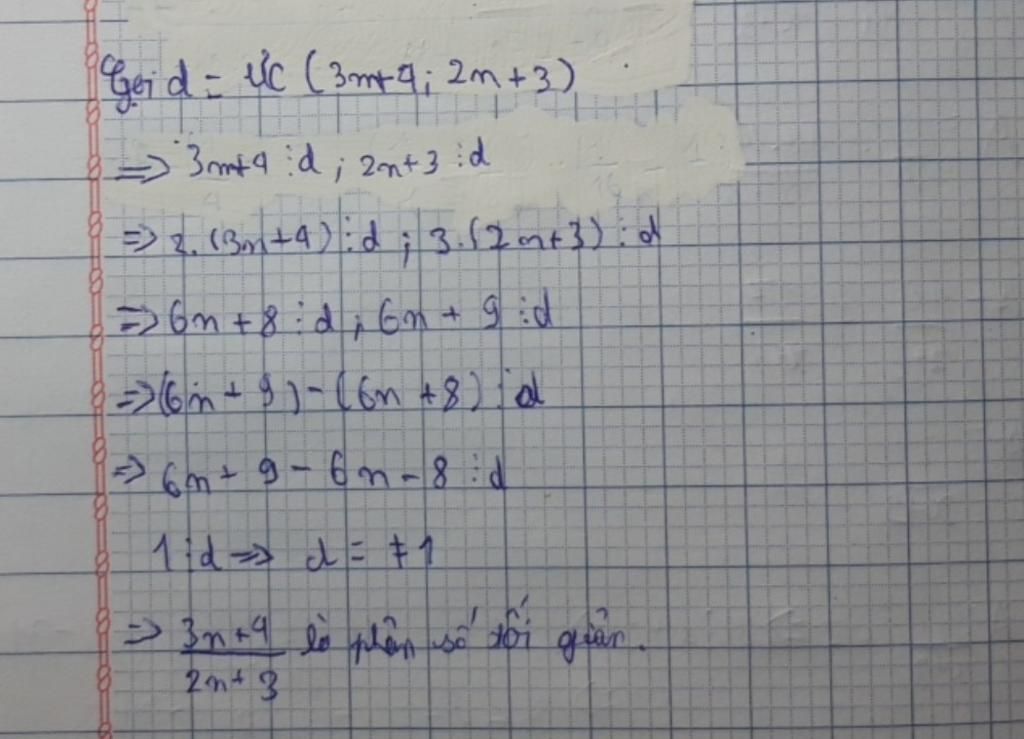 Gọi d = ƯC (3n+4; 2n+3)
=> 3n+4 ⋮ d ; 2n+3 ⋮ d
=> 2.(3n+4) ⋮ d ; 3.(2n+3) ⋮ d
=> 6n + 8 ⋮ d ; 6n + 9 ⋮ d
=> (6n + 9) - (6n + 8) ⋮ d
=> 6n + 9 - 6n - 8 ⋮ d
1 ⋮ d => d = ±1
=> \frac{3n+4}{2n+3} là phân số tối giản.